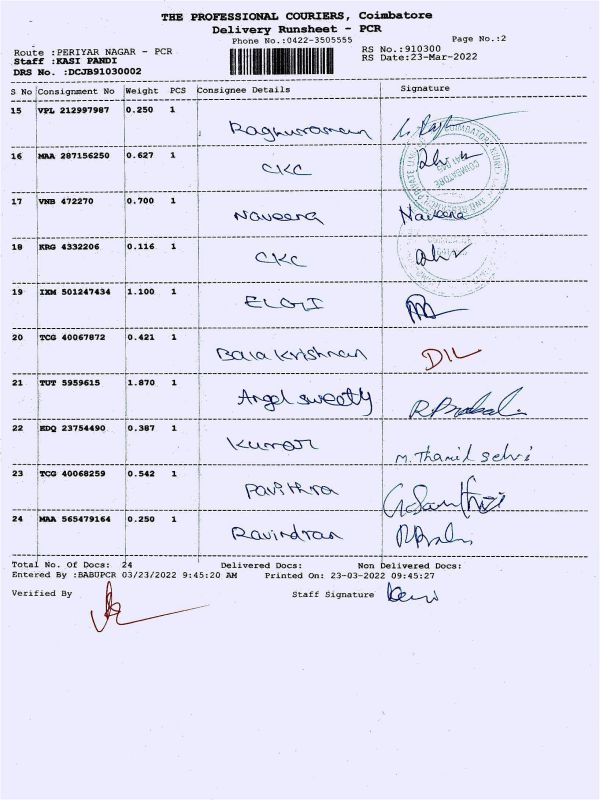 THE PROFESSIONAL COURIERS, Coimbatore
Delivery Runsheet - PCR
Phone No.:0422-3505555 Page No.:2
Route :PERIYAR NAGAR - PCR RS No.:910300
Staff :KASI PANDI RS Date:23-Mar-2022
DRS No. :DCJB91030002
S No Consignment No Weight PCS Consignee Details Signature
15 VPL 212997987 0.250 1
Raghuraman
16 MAA 287156250 0.627 1
CKC
17 VNB 472270 0.700 1
Naveena Naveena
18 KRG 4332206 0.116 1
CKC
19 IXM 501247434 1.100 1
ELGI
20 TCG 40067872 0.421 1
Bala Krishnan DIL
21 TUT 5959615 1.870 1
Angel sweetly
22 EDQ 23754490 0.387 1
Kumar M. Thamil Selvi
23 TCG 40068259 0.542 1
Pavithra
24 MAA 565479164 0.250 1
Ravindran
Total No. Of Docs: 24 Delivered Docs: Non Delivered Docs:
Entered By :BABUPCR 03/23/2022 9:45:20 AM Printed On: 23-03-2022 09:45:27
Verified By Staff Signature